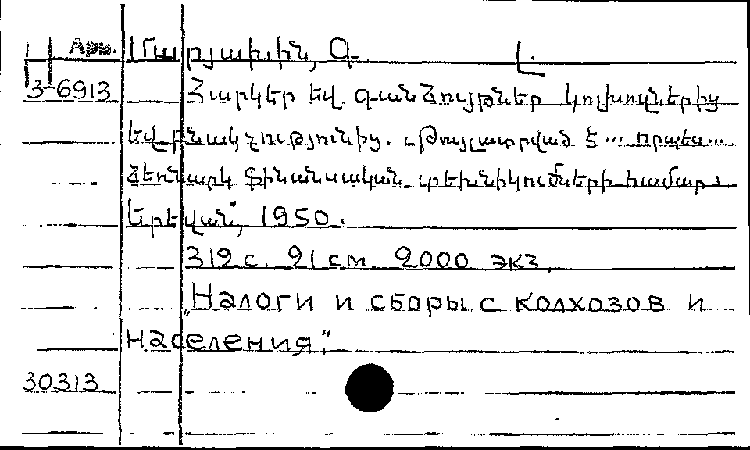 Арм. Մարյախին, Գ. Լ.
3-6913 Հարկեր եվ գանձույթներ կոլխոզներից
եվ բնակչությունից. "Թույլատրված է ... որպես ...
ձեռնարկ ֆինանսական տեխնիկումների համար."
Երեվան, 1950.
312 с. 21 см 2000 экз.
„Налоги и сборы с колхозов и
населения".
30313